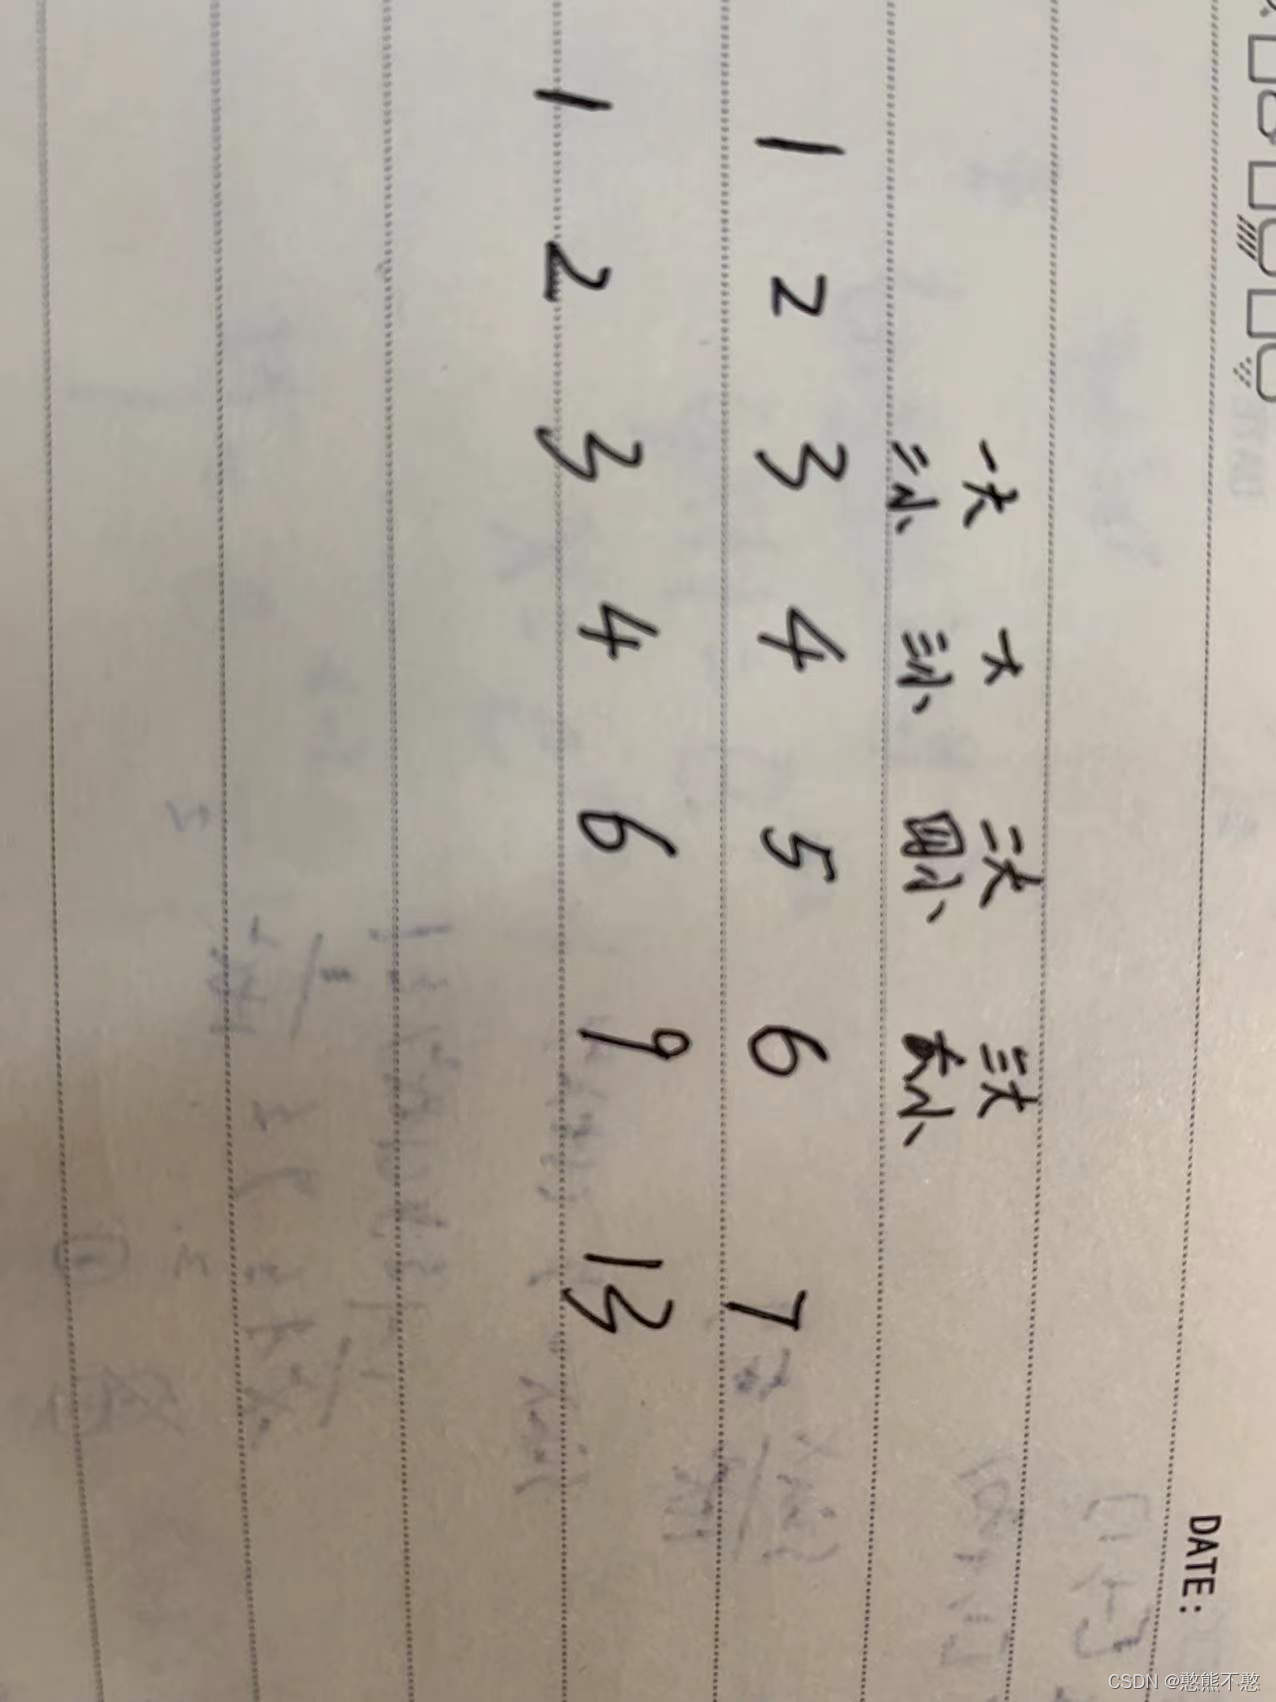 DATE:
一大 大 二大 三大
二小 三小 四小 六小
1 2 3 4 5 6 7
1 2 3 4 6 9 13
CSDN @憨熊不憨